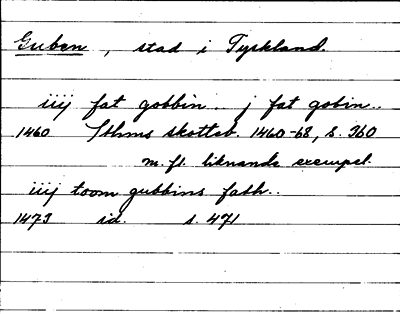 Guben, stad i Tyskland.
iiij fat gobbin.. j fat gobin..
1460 Sthms skotteb. 1460-68, s. 360
m.fl. liknande exempel.
iiij toom gubbins fath..
1473 id. s. 471